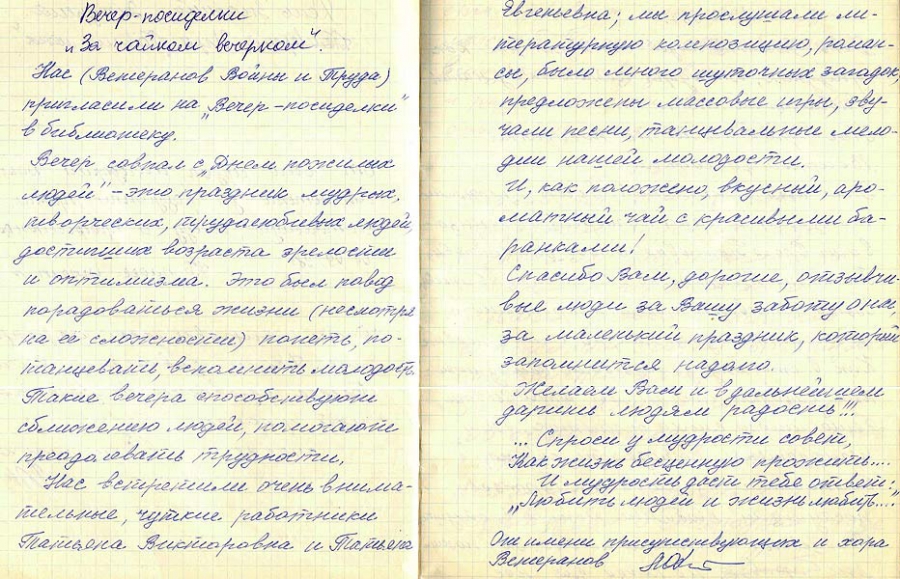 Вечер-посиделки
„За чайком вечерком".
Нас (Ветеранов Войны и Труда)
пригласили на „Вечер-посиделки"
в библиотеку.
Вечер совпал с „Днем пожилых
людей" – это праздник мудрых,
творческих, трудолюбивых людей,
достигших возраста зрелости
и оптимизма. Это был повод
порадоваться жизни (несмотря
на её сложности) попеть, по-
танцевать, вспомнить молодость.
Такие вечера способствуют
сближению людей, помогают
преодолевать трудности.
Нас встретили очень внима-
тельные, чуткие работники
Татьяна Викторовна и Татьяна
Евгеньевна; мы прослушали ли-
тературную композицию, роман-
сы, было много шуточных загадок,
предложены массовые игры, зву-
чали песни, танцевальные мело-
дии нашей молодости.
И, как положено, вкусный, аро-
матный чай с красивыми ба-
ранками!
Спасибо Вам, дорогие, отзывчи-
вые люди за Вашу заботу о нас,
за маленький праздник, который
запомнится надолго.
Желаем Вам и в дальнейшем
дарить людям радость!!!
... Спроси у мудрости совет,
Как жизнь бесценную прожить....
И мудрость даст тебе ответ:
„Любить людей и жизнь любить...."
От имени присутствующих и хора
Ветеранов